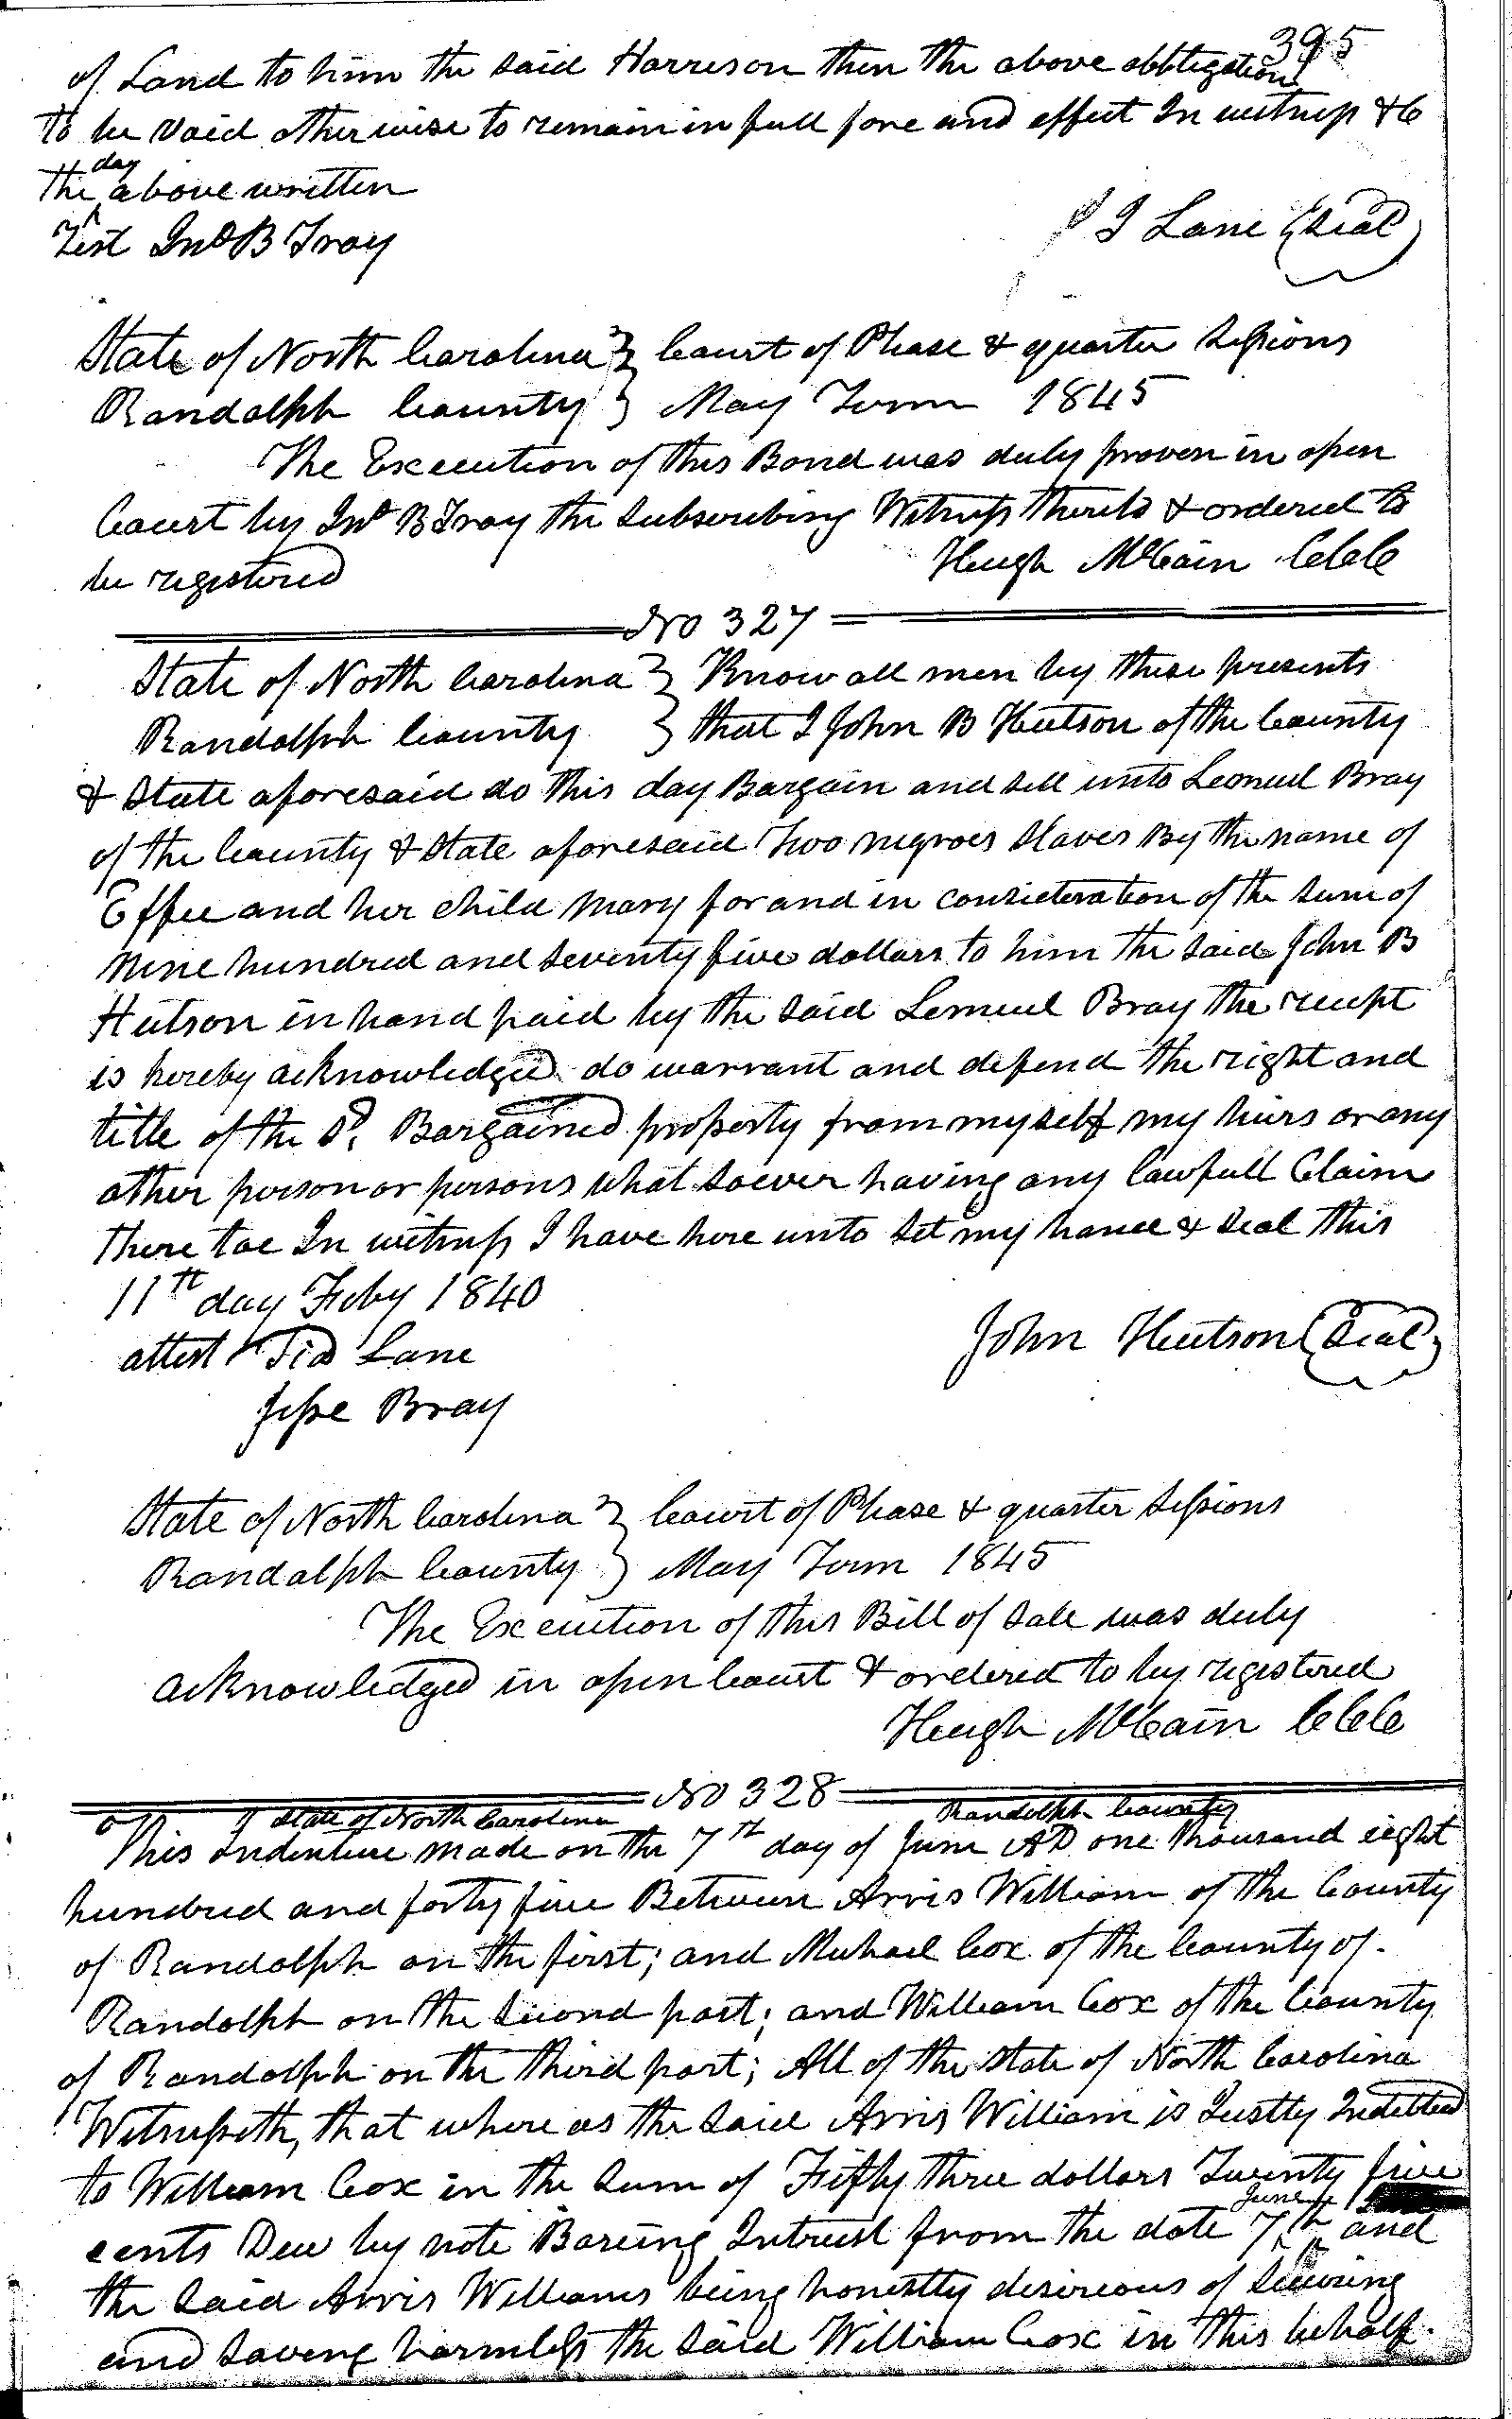 395
of Land to him the said Harrison then the above obbligation
to be void otherwise to remain in full fore and effect In witness &c
the day above written
Test Jno B Troy
J Lane (Seal)
State of North Carolina } Court of Please & quarter Sessions
Randolph County } May Term 1845
The Execution of this Bond was duly proven in open
Court by Jno B Troy the Subscribing Witness thereto & ordered to
be registered
Hugh McCain CCC
No 327
State of North Carolina } Know all men by these presents
Randolph County } that I John B Hutson of the County
& State aforesaid do this day Bargain and sell unto Lemuel Bray
of the County & State aforesaid Two negroes Slaves By the name of
Effee and her child Mary for and in consideration of the sum of
Nine hundred and seventy five dollars to him the said John B
Hutson in hand paid by the said Lemuel Bray the recept
is hereby acknowledged do warrant and defend the right and
title of the Sd. Bargained property from myself my heirs or any
other person or persons what soever having any lawfull Claim
there toe In witness I have here unto set my hand & seal this
11th day Feby 1840
attest Tid Lane
John Hutson (Seal)
Jesse Bray
State of North Carolina } Court of Please & quarter Sessions
Randolph County } May Term 1845
The Execution of this Bill of Sale was duly
acknowledged in open Court & ordered to by registered
Hugh McCain CCC
No 328
State of North Carolina Randolph County
This Indenture made on the 7th day of June AD one thousand eight
hundred and forty five Between Arris William of the County
of Randolph on the first; and Michael Cox of the County of
Randolph on the Second part; and William Cox of the County
of Randolph on the third part; All of the State of North Carolina
Witnesseth, that where as the said Arris William is Justly Indebted
to William Cox in the Sum of Fifty three dollars Twenty five
cents Dew by note Bareing Intrust from the date 7th June and
the said Arris Williams being honestly desireous of Secureing
and saveing harmless the said William Cox in this behalf.